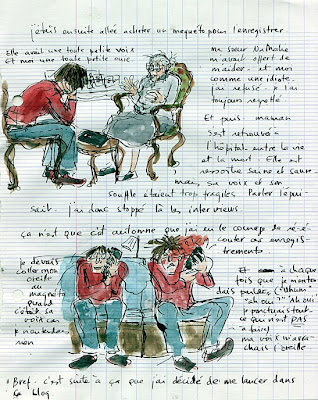 j'étais ensuite allée acheter un magnéto pour l'enregistrer.
Elle avait une toute petite voix
Et moi une toute petite ouïe
Ma sœur Nathalie
m'avait offert de
m'aider - et moi
comme une idiote
j'ai refusé - je l'ai
toujours regretté
Et puis maman
s'est retrouvée à
l'hôpital entre la vie
et la mort. Elle est
ressortie saine et sauve
mais sa voix et son
souffle étaient trop fragiles. Parler l'épui-
sait. j'ai donc stoppé là les interviews
ça n'est que cet automne que j'ai eu le courage de ré-é-
couter ces enregis-
trements
je devais
coller mon
oreille
au
magnéto
quand
c'était sa
voix car
je n'entendais
rien
Et à chaque
fois que je m'enten-
dais parler ("Uhum"
"ah oui?" "Ah oui"
je ponctuais tout
ce qui n'est PAS
à faire)
ma voix m'arra-
chait l'oreille
Bref - c'est suite à ça que j'ai décidé de me lancer dans
ce blog